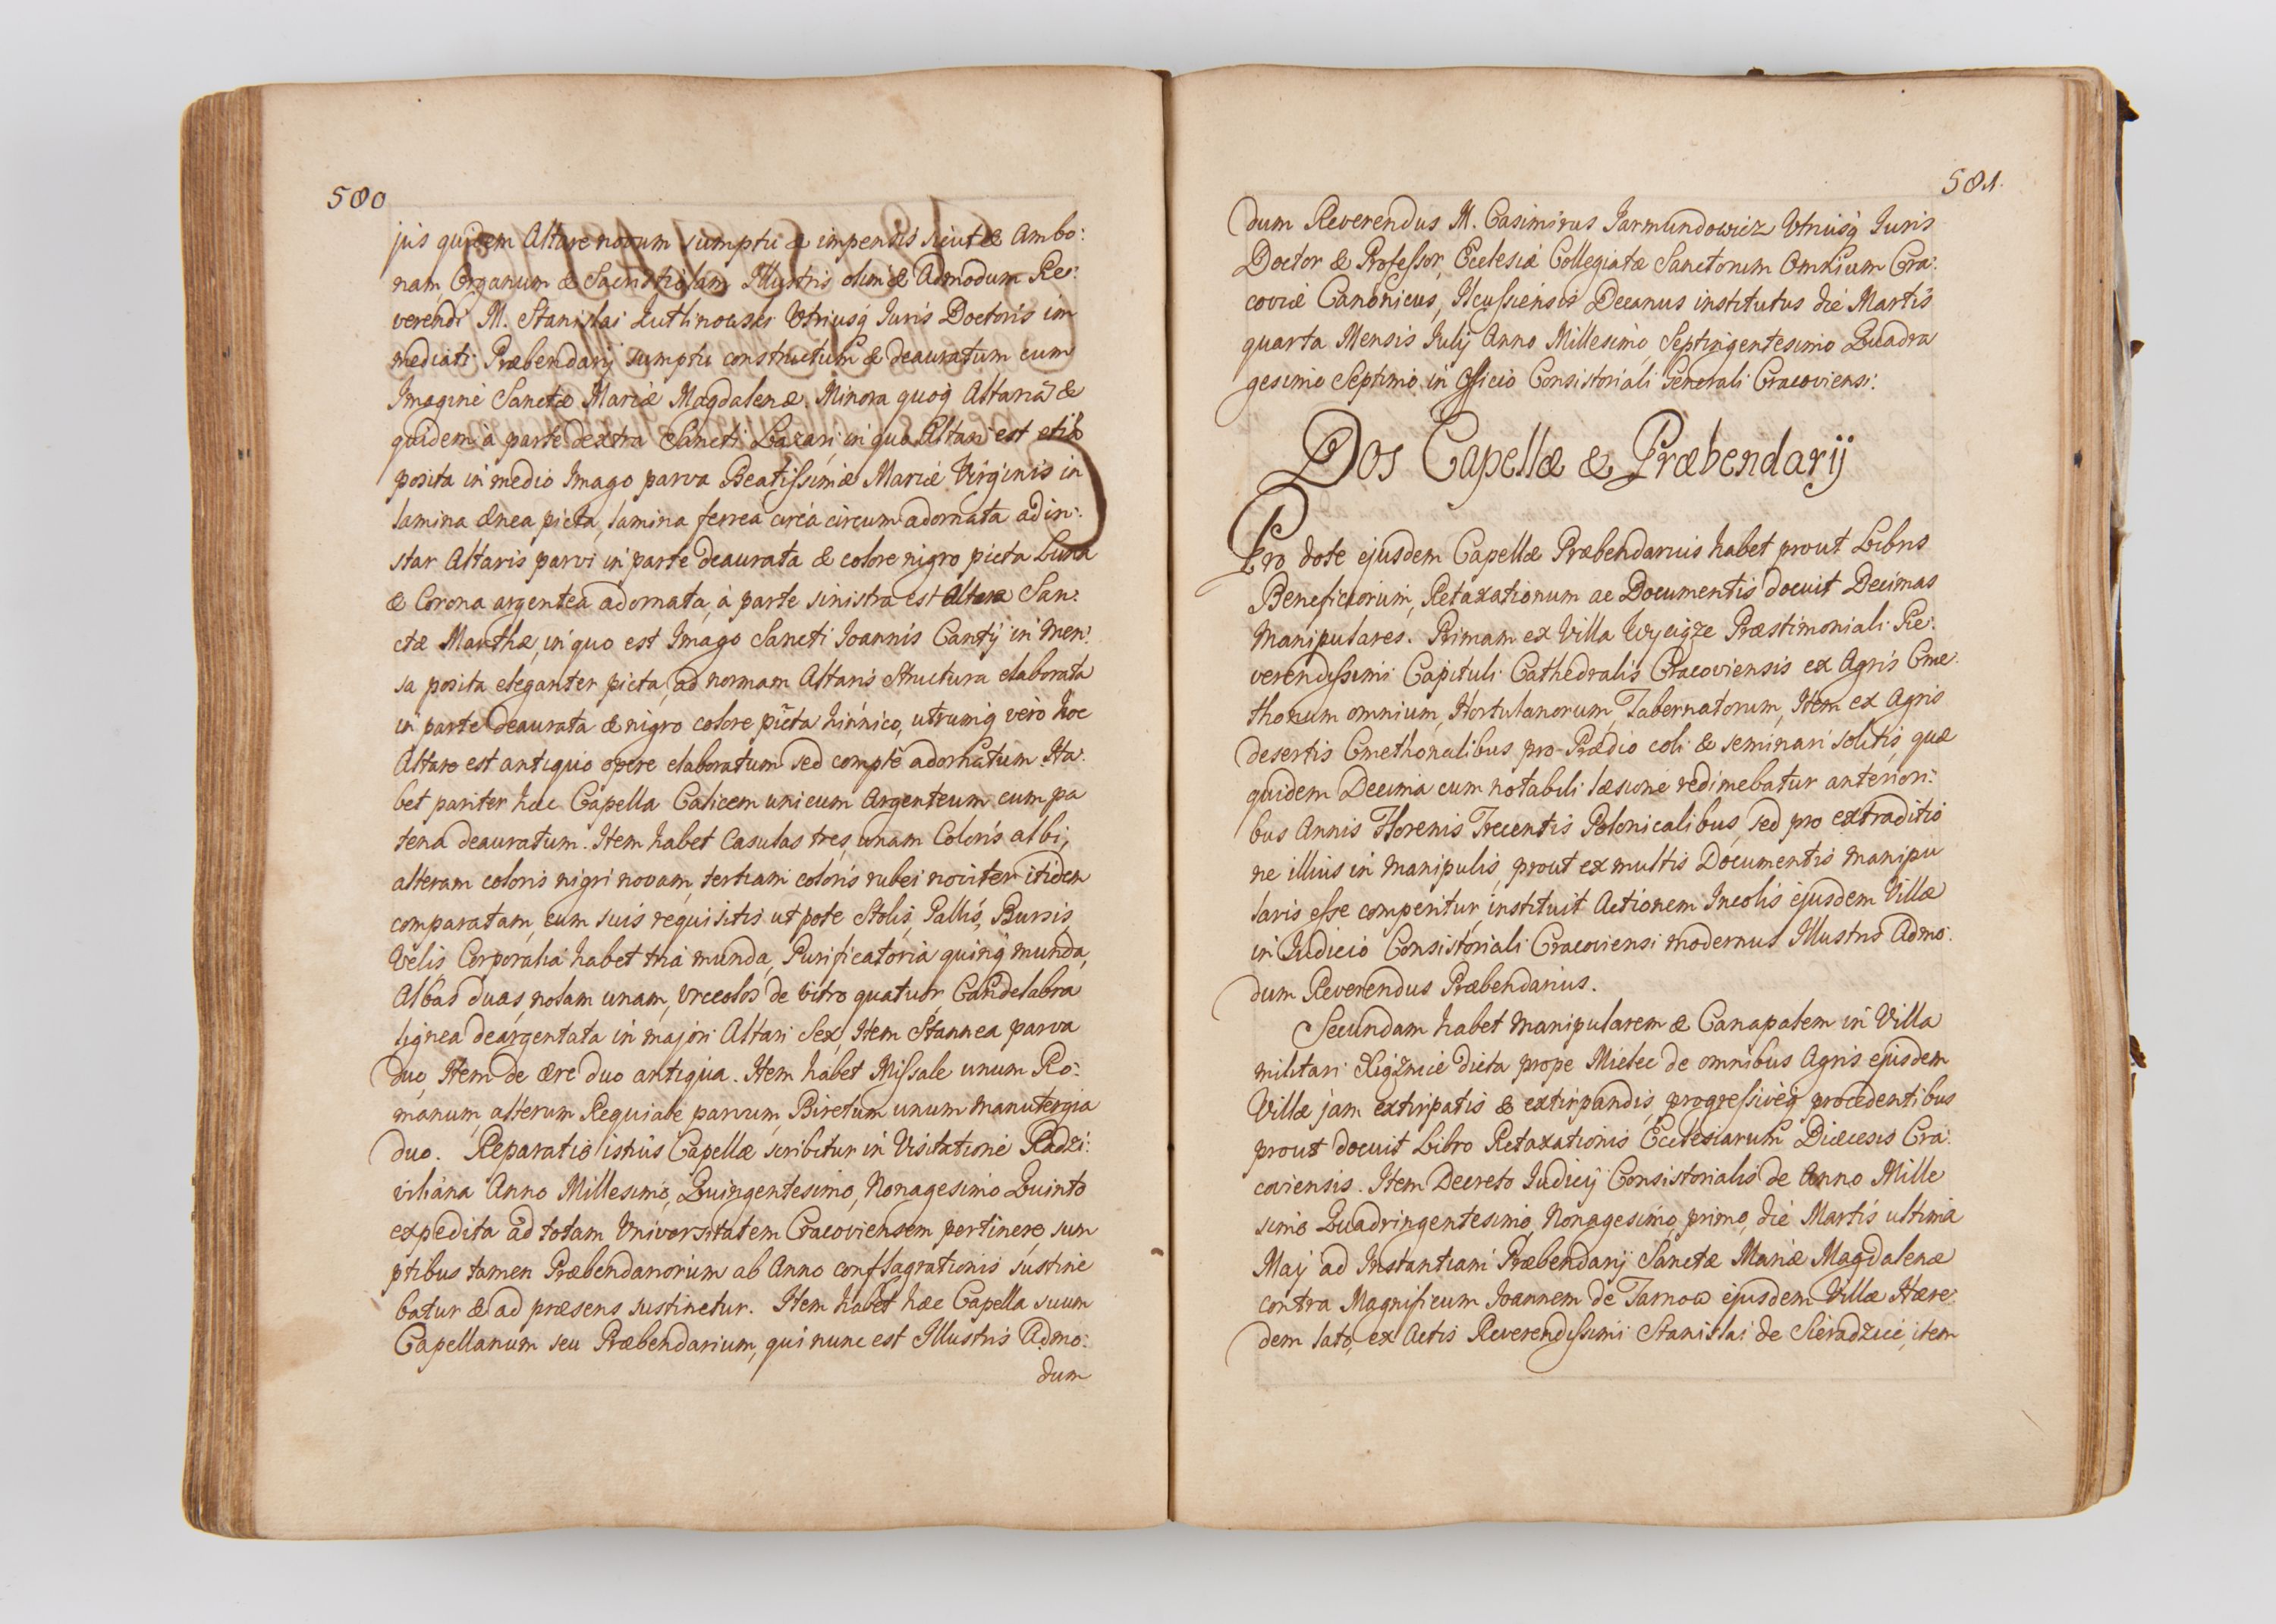 580
jus quidem Altare novum sumptu & impensis sicut & Ambo:
nam, Organum & Sacristiolam Illustris olim & Admodum Re:
verendi M. Stanislai Lutlinowski Utriusq Juris Doctoris im
mediati Præbendarij sumptu constructum & deauratum cum
Imagine Sanctæ Mariæ Magdalenæ. Minora quoq Altaria &
quidem à parte dextra Sancti Lazari, in quo Altari est
posita in medio Imago parva Beatissimæ Mariæ Virginis in
lamina ænea picta, lamina ferrea circa circum adornata ad in:
star Altaris parvi in parte deaurata & colore nigro picta Luna
& Corona argentea adornata, à parte sinistra est Altare San:
ctæ Marthæ, in quo est Imago Sancti Joannis Cantij in Men:
sa posita eleganter picta, ad normam Altaris Structura elaborata
in parte deaurata & nigro colore picta hinnico, utrumq vero hoc
Altare est antiquo opere elaboratum sed compte adornatum. Ha:
bet pariter hæc Capella Calicem unicum Argenteum cum pa
tena deauratum. Item habet Casulas tres, unam Coloris albi,
alteram coloris nigri novam, tertiam coloris rubei noviter itidem
comparatam, cum suis requisitis utpote Stolis, Pallis, Bursis,
Velis, Corporalia habet tria munda, Purificatoria quinq munda,
Albas duas, nolam unam, Urceolos de vitro quatuor, Candelabra
lignea deargentata in majori Altari Sex, Item Stannea parva
duo, Item de ære duo antiqua. Item habet Missale unum Ro:
manum, alterum Requiale parvum, Biretum unum manutergia
duo. Reparatio istius Capellæ scribitur in Visitatione Radzi:
viliana Anno Millesimo, Quingentesimo, Nonagesimo Quinto
expedita ad totam Universitatem Cracoviensem pertinere, sum
ptibus tamen Præbendariorum ab Anno conflagrationis sustine
batur & ad præsens sustinetur. Item habet hæc Capella suum
Capellanum seu Præbendarium, qui nunc est Illustris Admo:
dum
581.
dum Reverendus M. Casimirus Jarmundowicz Utriusq Juris
Doctor & Professor, Ecclesiæ Collegiatæ Sanctorum Omnium Cra:
coviæ Canonicus, Ilcussiensis Decanus institutus die Martis
quarta Mensis Julij Anno Millesimo, Septingentesimo Quadra
gesimo Septimo in Officio Consistoriali Generali Cracoviensi.
Dos Capellæ & Præbendarij
Pro dote ejusdem Capellæ Præbendarius habet prout Libris
Beneficiorum, Retaxationum ac Documentis docuit Decimas
Manipulares. Primam ex Villa Wyciąze Præstimoniali Re:
verendissimi Capituli Cathedralis Cracoviensis ex Agris Cme:
thonum omnium, Hortulanorum, Tabernatorum, Item ex Agris
desertis Cmethonalibus pro Prædio coli & seminari solitis, quæ
quidem Decima cum notabili læsione redimebatur anteriori:
bus Annis Florenis Trecentis Polonicalibus, sed pro extraditio
ne illius in manipulis, prout ex multis Documentis manipu
laris esse comperitur, instituit Actionem Incolis ejusdem Villæ
in Judicio Consistoriali Cracoviensi modernus Illustris Admo:
dum Reverendus Præbendarius.
Secundam habet manipularem & Canapalem in Villa
militari Xiąznice dicta prope Mielec de omnibus Agris ejusdem
Villæ jam extirpatis & extirpandis, progressiveq procedentibus
prout docuit Libro Retaxationis Ecclesiarum Diæcesis Cra:
coviensis. Item Decreto Judicij Consistorialis de Anno Mille
simo Quadringentesimo, Nonagesimo, primo, die Martis ultima
Maij ad Instantiam Præbendarij Sanctæ Mariæ Magdalenæ
contra Magnificum Joannem de Tarnow ejusdem Villæ Hære:
dem lato, ex Actis Reverendissimi Stanislai de Sieradzice, item